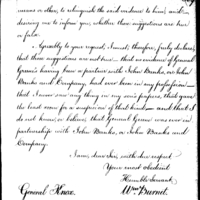 means or other, to relinquish the said evidence to him: and
desiring me to inform you, whether these suggestions are true
or false.
Agreeably to your request, I must, therefore, freely declare
that these suggestions are not true: that no evidence of General
Green's having been a partner with John Banks, or John
Banks and Company, had ever been in my possession
that I never saw any thing in my life
the least room for a suspicion of that kind and that I
do not know, or believe, that General Green was ever in
partnership with John Banks, or John Banks and
Company.
I am, dear Sir, with due respect
Your most obedient
Humble Servant,
General Knox. Wm Burnet.